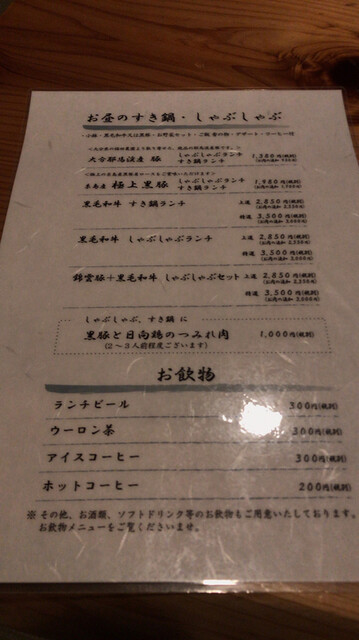 お昼のすき鍋・しゃぶしゃぶ
しゃぶしゃぶランチ
大分耶馬渓産 豚 すき鍋ランチ 1,380円(税別)
しゃぶしゃぶランチ
極上黒豚 すき鍋ランチ 1,980円(税別)
黒毛和牛 すき鍋ランチ 上選 2,850円(税別)
特選 3,500円(税別)
黒毛和牛 しゃぶしゃぶランチ 上選 2,850円(税別)
特選 3,500円(税別)
錦雲豚+黒毛和牛 しゃぶしゃぶセット 上選 2,850円(税別)
特選 3,500円(税別)
しゃぶしゃぶ、すき鍋 に
黒豚と日向鶏のつみれ肉 1,000円(税別)
(2~3人前程度ございます)
お飲物
ランチビール 300円(税別)
ウーロン茶 300円(税別)
アイスコーヒー 300円(税別)
ホットコーヒー 200円(税別)
※その他、お酒類、ソフトドリンク等のお飲物もご用意いたしております。
お飲物メニューをご覧くださいませ。